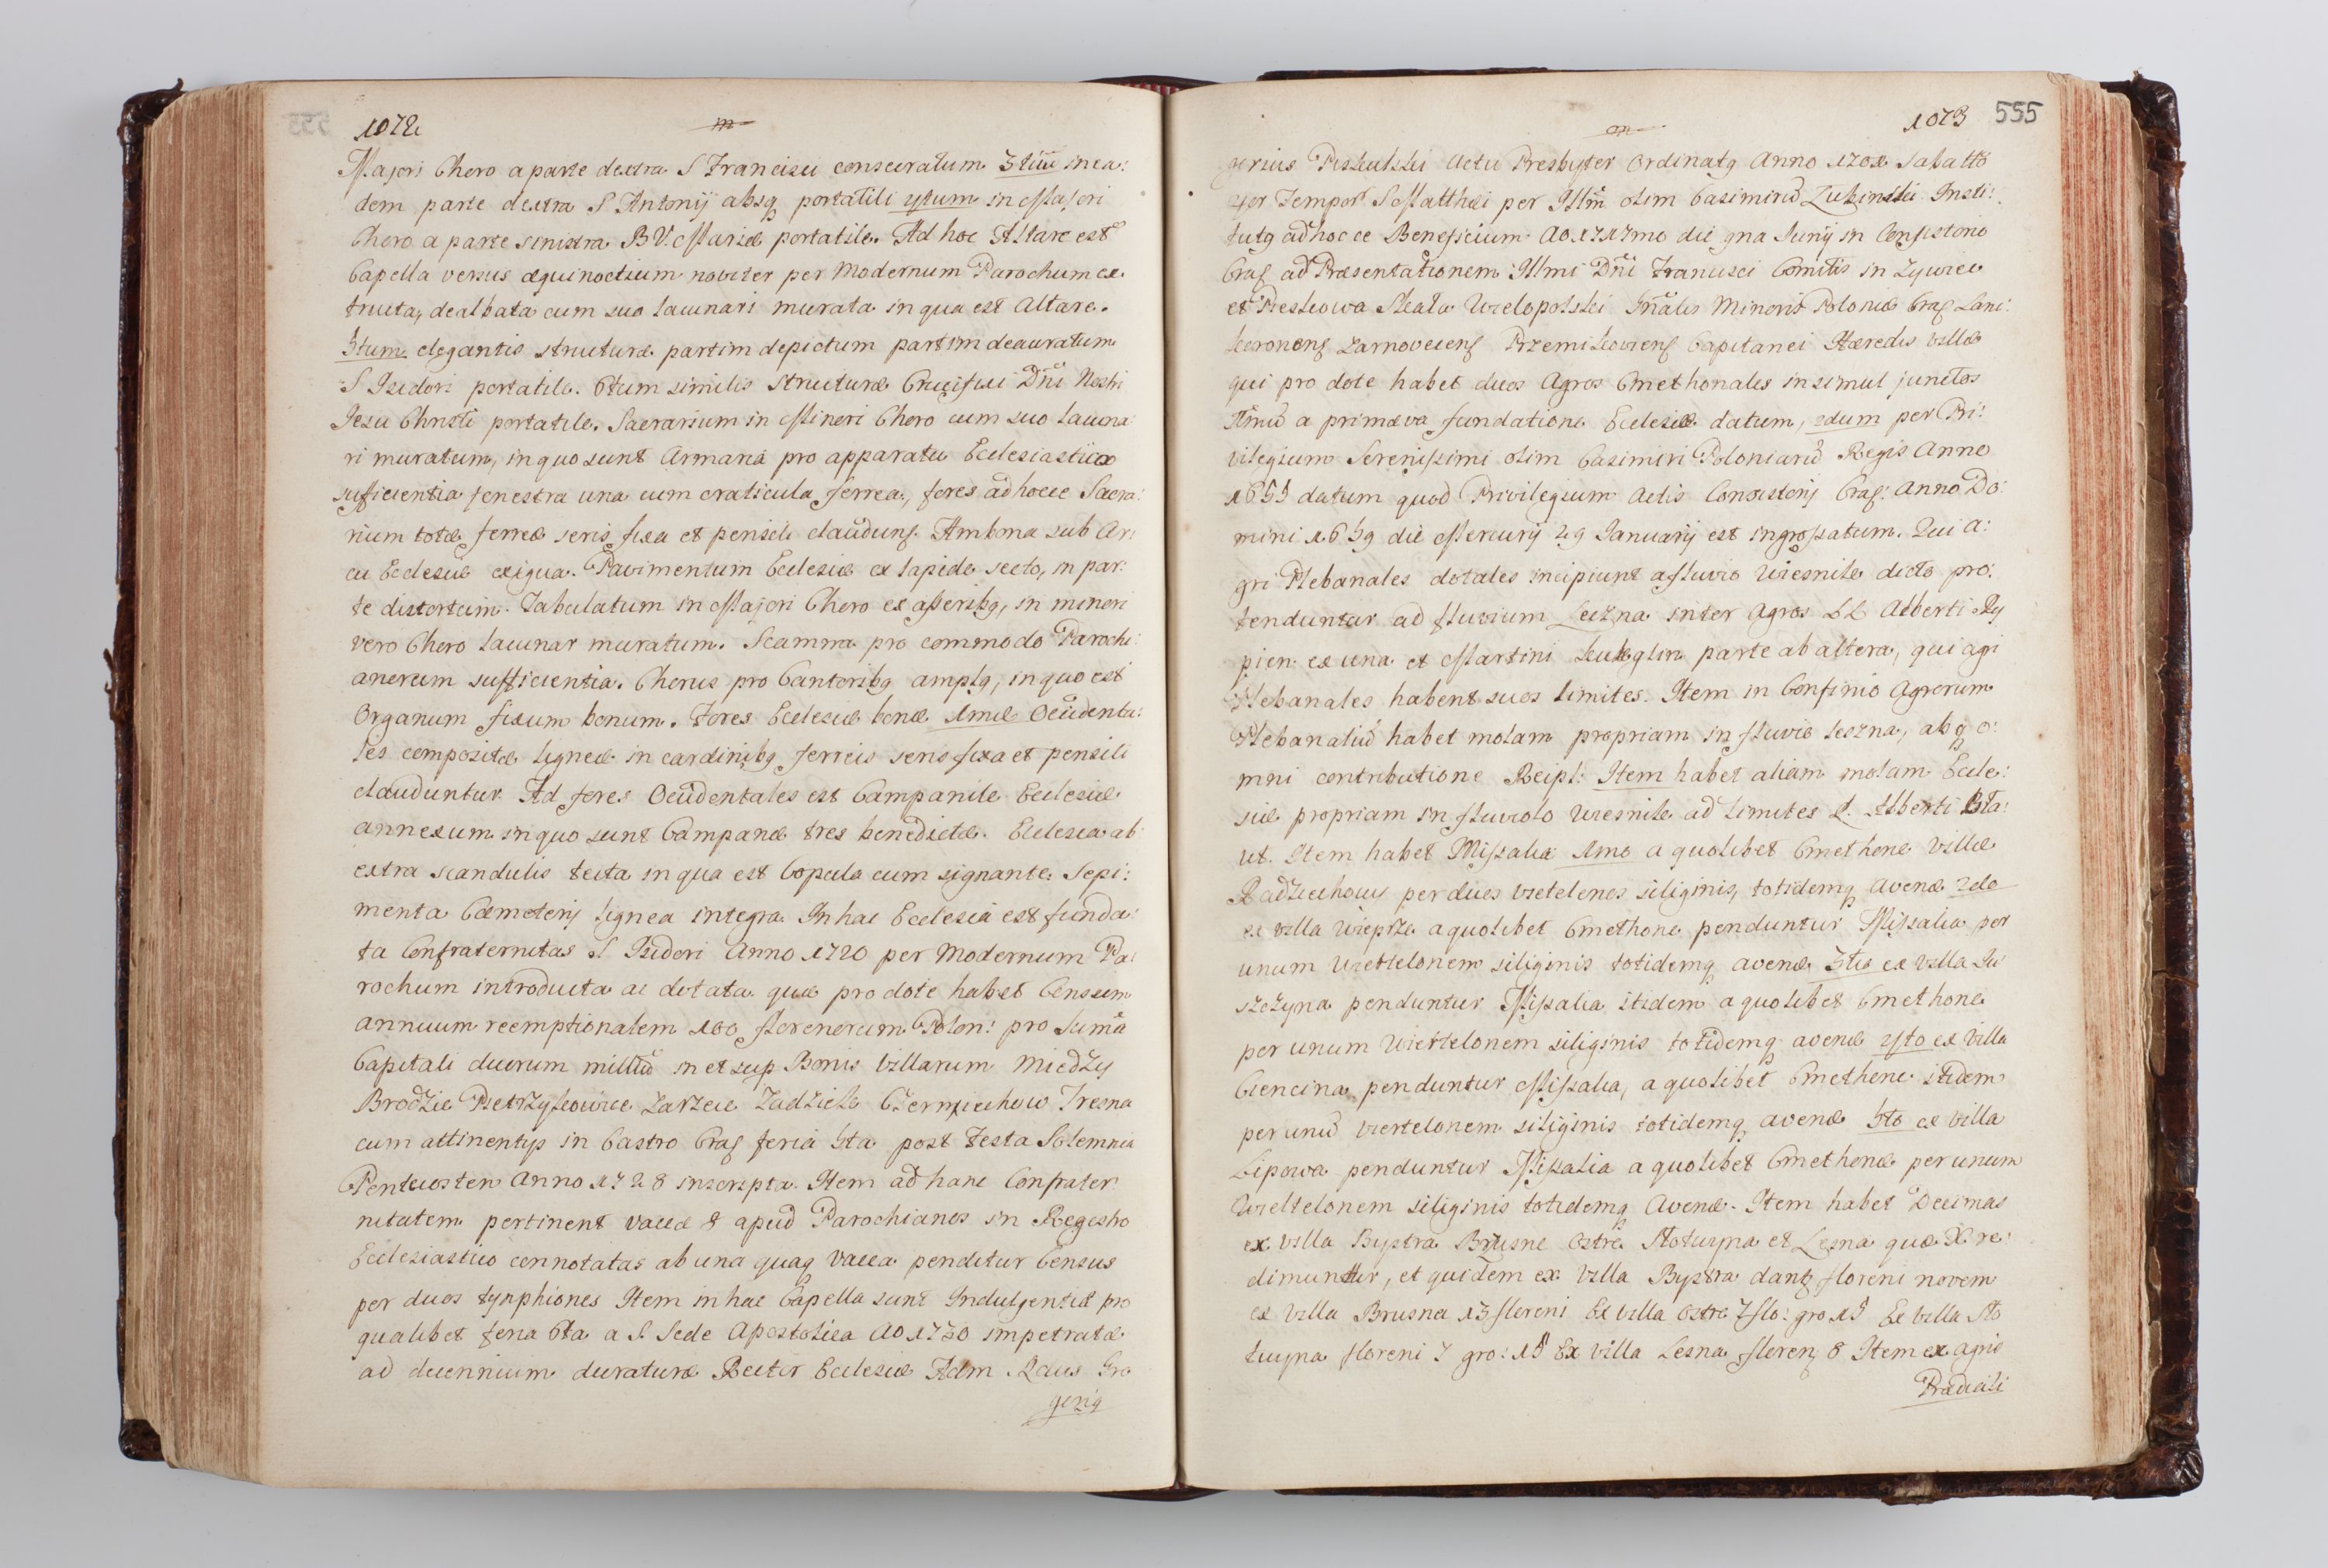 1072
m
Majori Choro a parte dextra S Francisci consecratum 3tiũ in ea:
dem parte dextra S Antonij absq portatili 4tum in Majori
Choro a parte sinistra B V. Mariæ portatile. Ad hoc Altare est
Capella versus æquinoctium noviter per Modernum Parochum ex
tructa, dealbata cum suo lacunari murata in qua est Altare.
5tum elegantis structuræ partim depictum partim deauratum
S Isidori portatile. 6tum similis structuræ Crucifixi Dñi Nostri
Jesu Christi portatile. Sacrarium in Minori Choro cum suo lacuna
ri muratum, in quo sunt Armaria pro apparatu Ecclesiastico
sufficientia fenestra una cum craticula ferrea, fores ad hocce Sacra:
rium totæ ferreæ seris fixa et pensili claudunt. Ambona sub Ar:
cu Ecclesiæ exigua. Pavimentum Ecclesiæ ex lapide secto, in par:
te distortum. Tabulatum in Majori Choro ex asseribq, in minori
vero Choro lacunar muratum. Scamna pro commodo Parochi:
anorum sufficientia. Chorus pro Cantoribq amplq, in quo est
Organum fixum bonum. Fores Ecclesiæ bonæ 1mæ Occidenta:
les compositæ ligneæ in cardinibq ferreis seris fixa et pensili
clauduntur. Ad fores Occidentales est Campanile Ecclesiæ
annexum in quo sunt Campanæ tres benedictæ. Ecclesia ab
extra scandulis tecta in qua est Copula cum signante. Sepi:
menta Cæmeterij lignea integra. In hac Ecclesia est funda:
ta Confraternitas S Isidori Anno 1720 per Modernum Pa:
rochum introducta ac dotata quæ pro dote habet Censum
annuum reemptionalem 100 florenorum Polon: pro Suma
Capitali duorum milliũ in et sup Bonis Villarum Miedzy
Brodzie Pietrzykowice Zarzece Zadziele Czernichow Tresna
cum attinentijs in Castro Crac feria 5ta post Festa Solemnia
Pentecosten Anno 1728 inscripta. Item ad hanc Confrater
nitatem pertinent vaccæ 8 apud Parochianos in Regestro
Ecclesiastico connotatas ab una quaq vacca penditur Census
per duos tynphiones Item in hac Capella sunt Indulgentiæ pro
qualibet feria 6ta a S. Sede Apostolica Ao 1730 impetratæ
ad decennium duraturæ Rector Ecclesiæ Adm Rdus Gre
gorig
1073 555
on
gorius Piskulski Actu Presbyter Ordinatq Anno Sabatto
4or Tempor S Matthæi per Illm̃ olim Casimirũ Lubinski Insti:
tutq ad hocce Beneficium Ao 1717mo die gna Junij in Consistorio
Crac ad Præsentationem Illmi Dñi Francisci Comitis in Zywiec
et Pieskowa Skala Wielopolski Gñalis Minoris Poloniæ Crac Lanc:
koronens Zarnoveciens Przemikoviens Capitanei Hæredis villæ
qui pro dote habet duos Agros Cmethonales in simul junctos
1mũ a primæva fundatione Ecclesiæ datum, 2dum per Pri:
vilegium Serenissimi olim Casimiri Poloniarũ Regis Anno
1655 datum quod Privilegium Actis Consistorij Crac: Anno Do:
mini 1659 die Mercurij 29 Januarij est ingrossatum. Qui a:
gri Plebanales dotales incipiunt a fluvio Wiesnik dicto pro:
tenduntur ad fluvium Leczna inter Agros LL Alberti Ry
pien ex una et Martini parte ab altera, qui agi
Plebanales habent suos limites. Item in Confinio Agrorum
Plebanaliũ habet molam propriam in fluvio leszna, absq o:
mni contributione Reipl: Item habet aliam molam Eccle:
siæ propriam in fluviolo Wiesnik ad limites L. Alberti
ut. Item habet Missalia 1mo a quolibet Cmethone villæ
Radziechowy per duos viertelones siliginis, totidemq avenæ 2do
ex villa Wieprze a quolibet Cmethone penduntur Missalia per
unum Wiertelonem siliginis totidemq avenæ 3tio ex villa Ju
szczyna penduntur Missalia itidem a quolibet Cmethone
per unum Wiertelonem siliginis totidemq avenæ 4to ex Villa
Ciencina penduntur Missalia, a quolibet Cmethone itidem
per unũ viertelonem siliginis totidemq avenæ 5to ex villa
Lipowa penduntur Missalia a quolibet Cmethone per unum
Wieltelonem siliginis totidemq Avenæ. Item habet Decimas
ex villa Bystra Brusne Ostre Slotwyna et Lesna quæ re:
dimuntur, et quidem ex Villa Bystra dant floreni novem
ex villa Brusna 13 floreni Ex villa Ostre 7 flo: gro 15 Ex villa Slo
twyna floreni 7 gro: 15 Ex villa Lesna floren 8 Item ex agris
Prædicali